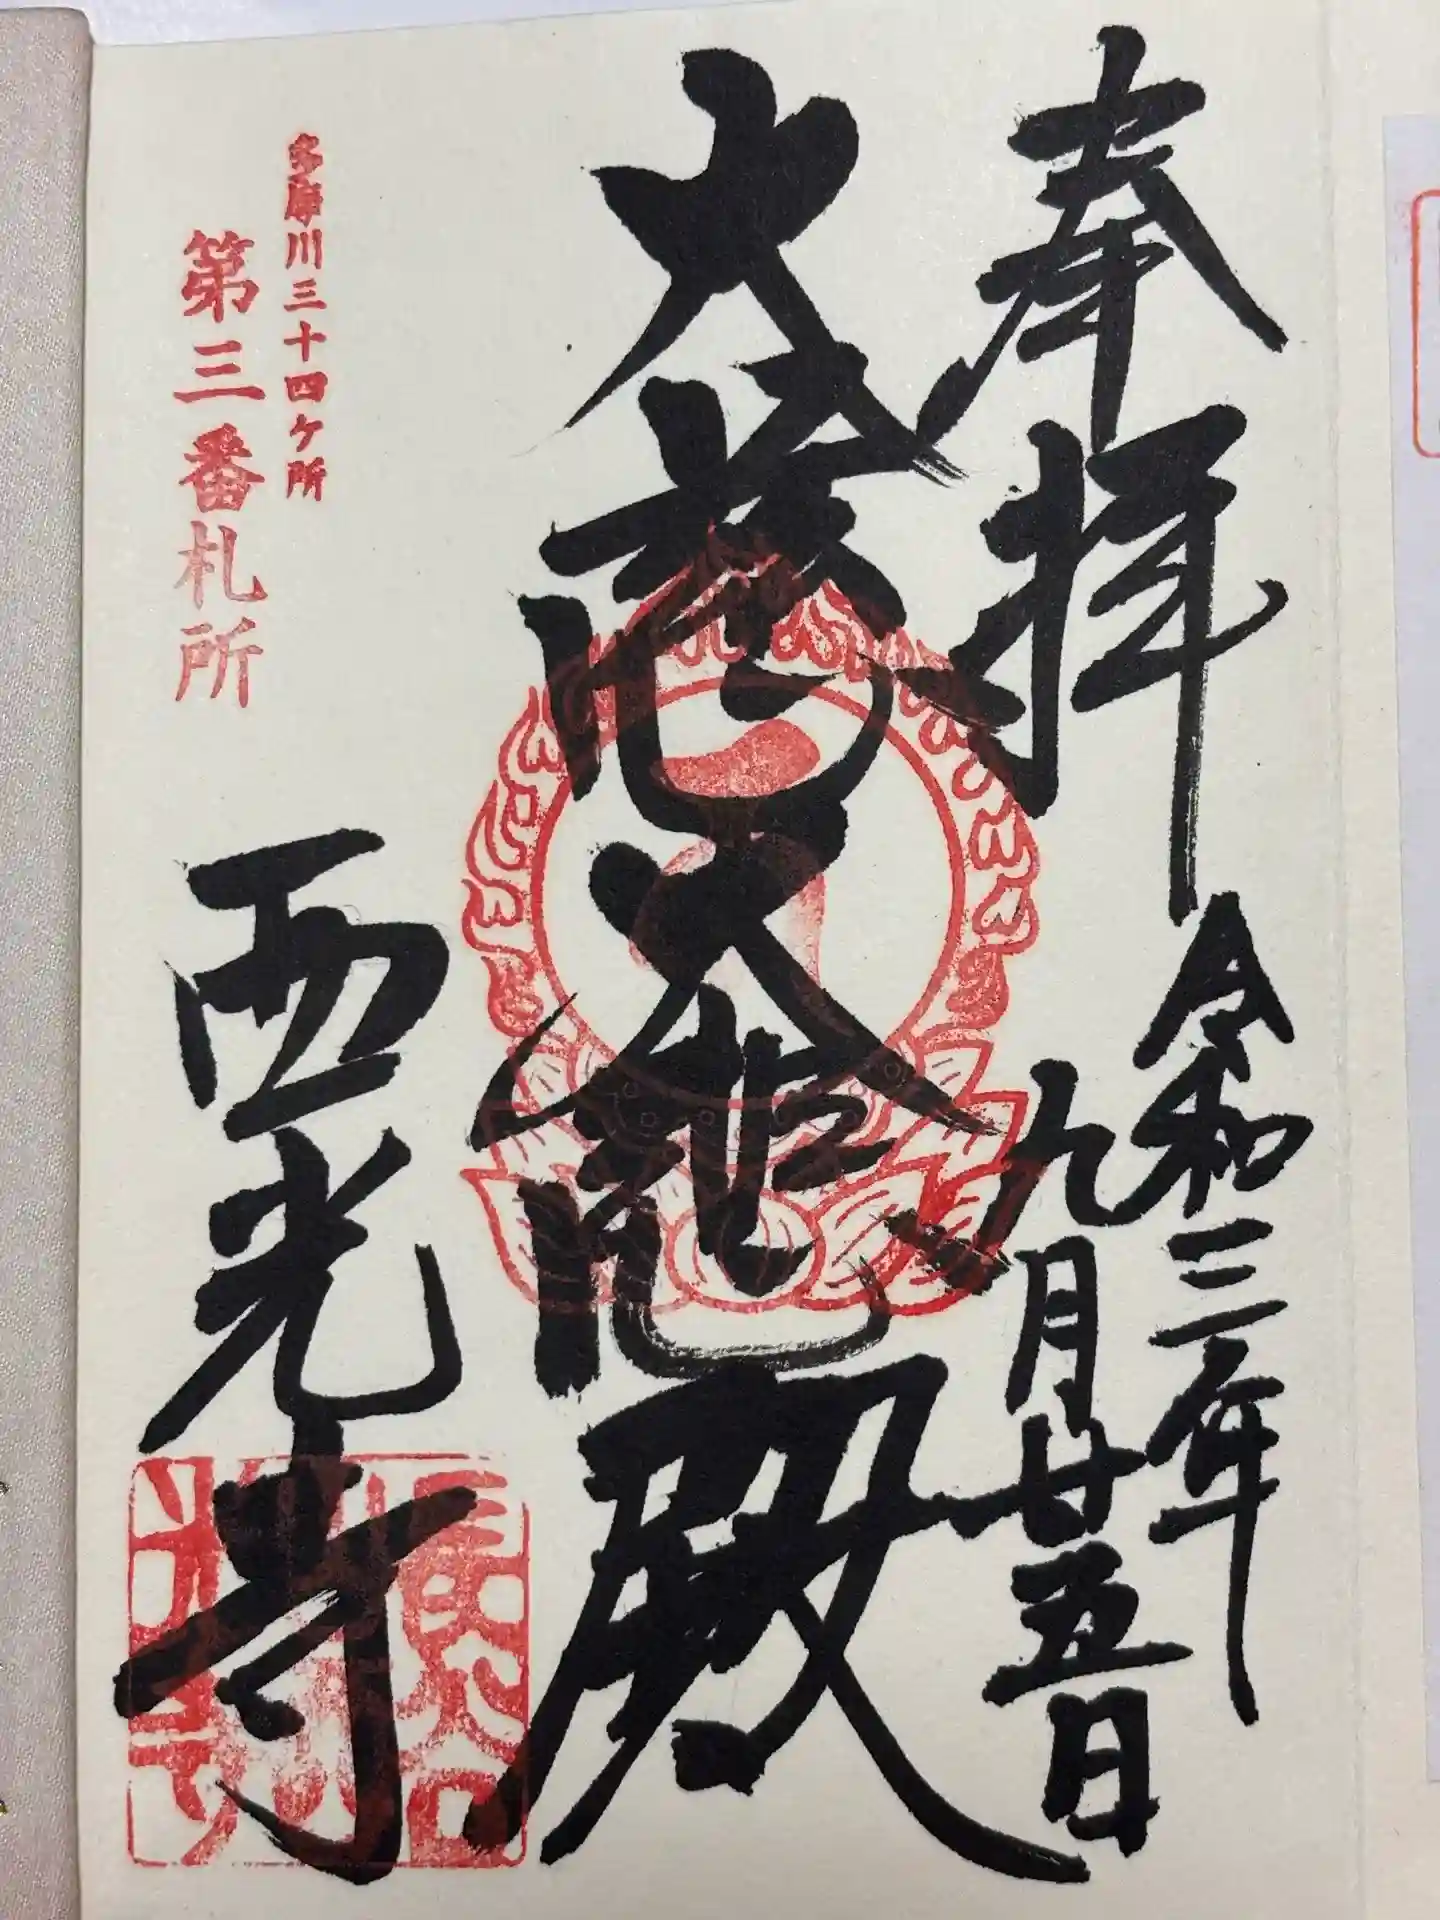 奉拝
令和三年
九月廿五日
大慈大悲殿
多摩川三十四ケ所
第三番札所
西光寺